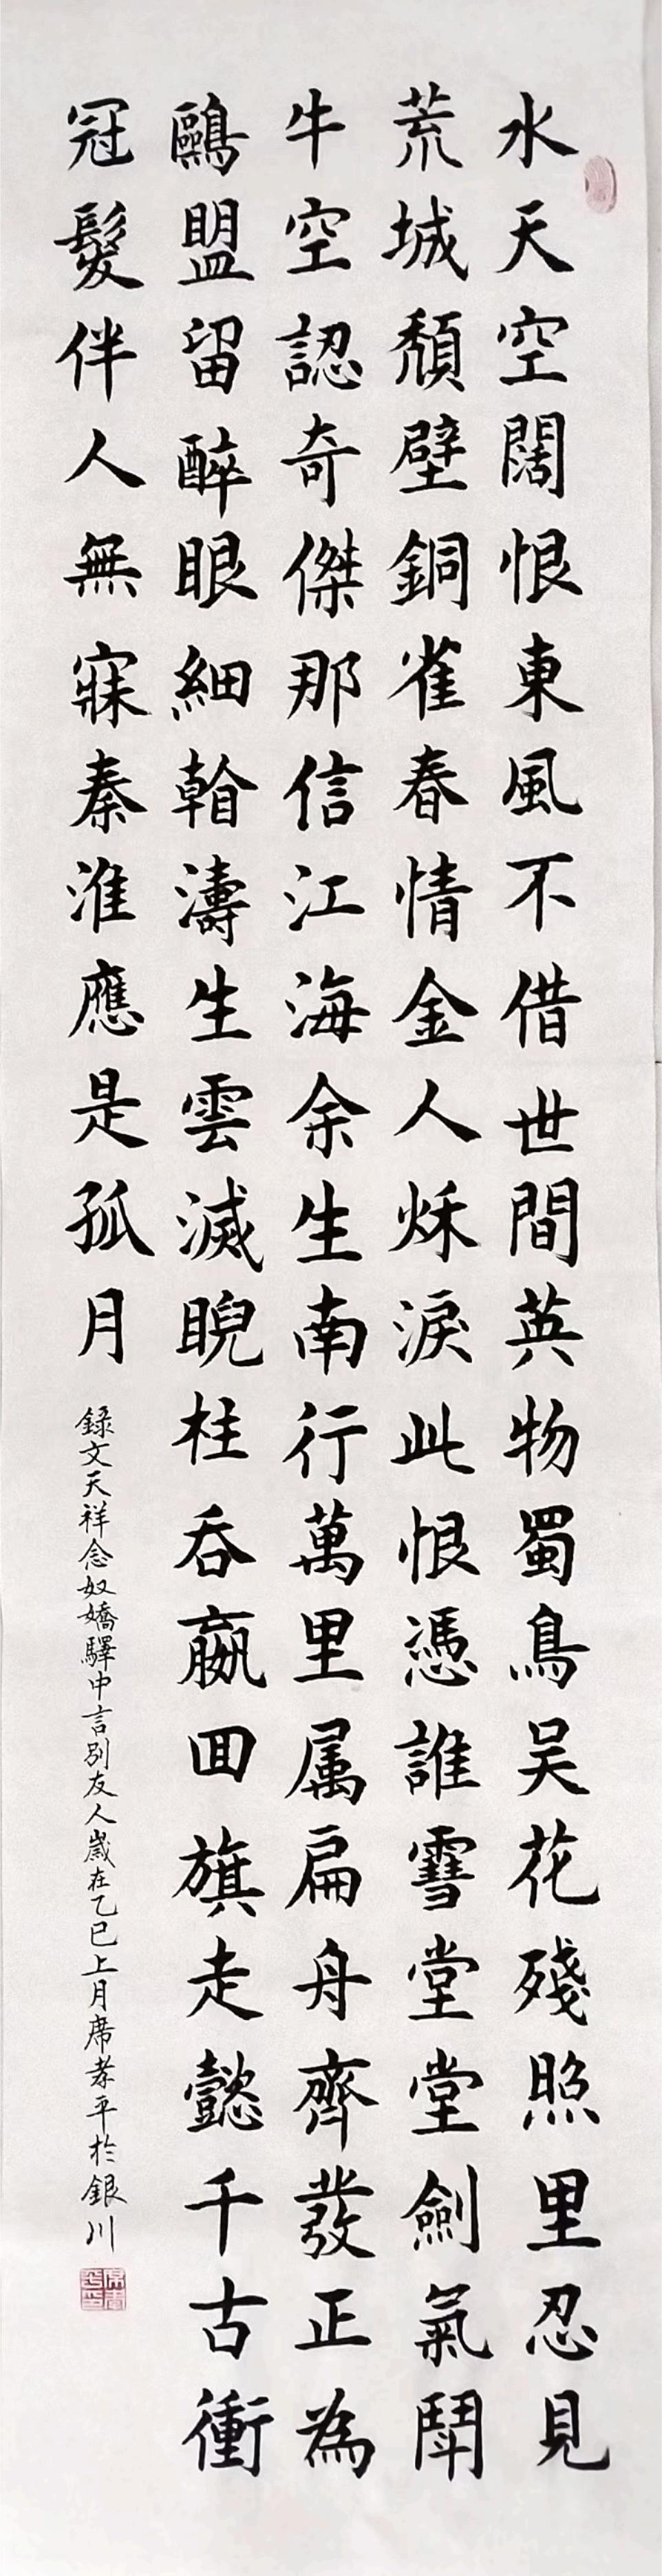 水天空闊恨東風不借世間英物蜀鳥吴花殘照里忍見
荒城頹壁銅雀春情金人秌淚此恨憑誰雪堂堂劍氣鬪
牛空認奇傑那信江海余生南行萬里属扁舟齊發正為
鷗盟留醉眼細㫺濤生雲滅睨柱吞嬴囬旗走懿千古衝
冠髮伴人無寐秦淮應是孤月
錄文天祥念奴嬌驛中言别友人歲在乙巳上月席孝平於銀川